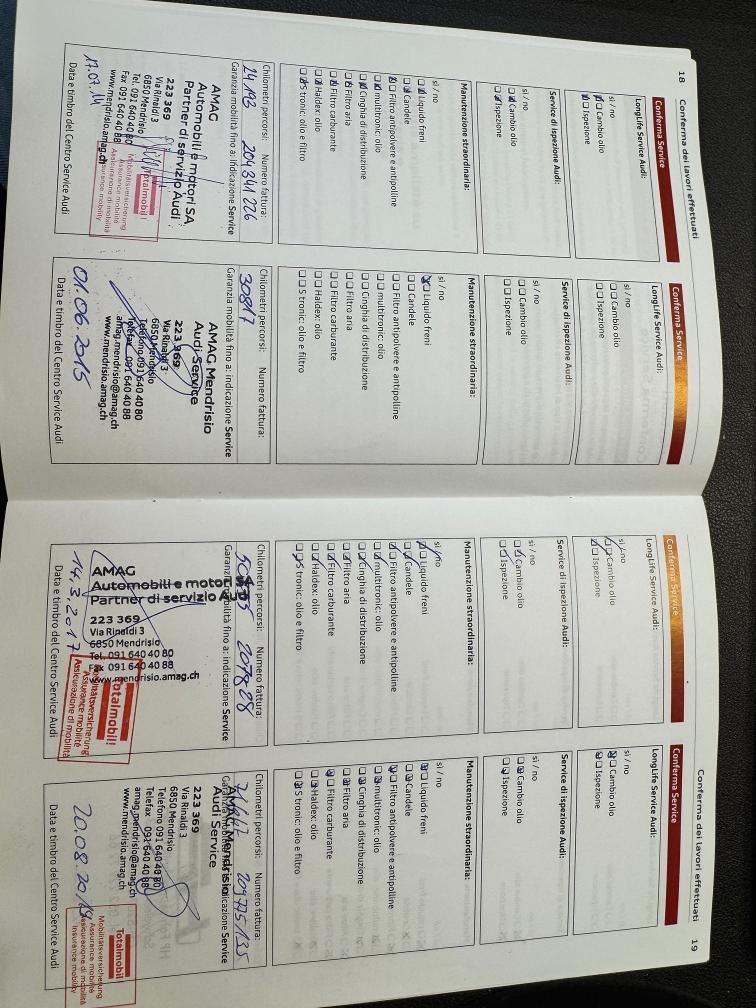 18 Conferma dei lavori effettuati
Conferma Service
LongLife Service Audi:
sì / no
Cambio olio
Ispezione
Service di ispezione Audi:
sì / no
Cambio olio
Ispezione
Manutenzione straordinaria:
sì / no
Liquido freni
Candele
Filtro antipolvere e antipolline
multitronic: olio
Cinghia di distribuzione
Filtro aria
Filtro carburante
Haldex: olio
S tronic: olio e filtro
Chilometri percorsi: Numero fattura:
24193 204341226
Garanzia mobilità fino a: indicazione Service
AMAG
Automobili e motori SA
Partner di servizio Audi
223 369
Via Rinaldi 3
6850 Mendrisio
Tel. 091 640 40 80
Fax 091 640 40 88
www.mendrisio.amag.ch
Totalmobil!
Mobilitätsversicherung
Assurance mobilité
Assicurazione di mobilità
Insurance mobility
17.07.14
Data e timbro del Centro Service Audi
Conferma Service
LongLife Service Audi:
sì / no
Cambio olio
Ispezione
Service di ispezione Audi:
sì / no
Cambio olio
Ispezione
Manutenzione straordinaria:
sì / no
Liquido freni
Candele
Filtro antipolvere e antipolline
multitronic: olio
Cinghia di distribuzione
Filtro aria
Filtro carburante
Haldex: olio
S tronic: olio e filtro
Chilometri percorsi: Numero fattura:
30811
Garanzia mobilità fino a: indicazione Service
AMAG Mendrisio
Audi Service
223 369
Via Rinaldi 3
6850 Mendrisio
Telefono 091 640 40 80
Telefax 091 640 40 88
amag.mendrisio@amag.ch
www.mendrisio.amag.ch
01.06.2015
Data e timbro del Centro Service Audi
Conferma Service
LongLife Service Audi:
sì / no
Cambio olio
Ispezione
Service di ispezione Audi:
sì / no
Cambio olio
Ispezione
Manutenzione straordinaria:
sì / no
Liquido freni
Candele
Filtro antipolvere e antipolline
multitronic: olio
Cinghia di distribuzione
Filtro aria
Filtro carburante
Haldex: olio
S tronic: olio e filtro
Chilometri percorsi: Numero fattura:
Garanzia mobilità fino a: indicazione Service
AMAG
Automobili e motori SA
Partner di servizio Audi
223 369
Via Rinaldi 3
6850 Mendrisio
Tel. 091 640 40 80
Fax 091 640 40 88
www.mendrisio.amag.ch
Totalmobil!
Mobilitätsversicherung
Assurance mobilité
Assicurazione di mobilità
14.3.2017
Data e timbro del Centro Service Audi
Conferma dei lavori effettuati 19
Conferma Service
LongLife Service Audi:
sì / no
Cambio olio
Ispezione
Service di ispezione Audi:
sì / no
Cambio olio
Ispezione
Manutenzione straordinaria:
sì / no
Liquido freni
Candele
Filtro antipolvere e antipolline
multitronic: olio
Cinghia di distribuzione
Filtro aria
Filtro carburante
Haldex: olio
S tronic: olio e filtro
Chilometri percorsi: Numero fattura:
209775135
Garanzia mobilità fino a: indicazione Service
AMAG Mendrisio
Audi Service
223 369
Via Rinaldi 3
6850 Mendrisio
Telefono 091 640 40 80
Telefax 091 640 40 88
amag.mendrisio@amag.ch
www.mendrisio.amag.ch
Totalmobil!
Mobilitätsversicherung
Assurance mobilité
Assicurazione di mobilità
Insurance mobility
20.08.2019
Data e timbro del Centro Service Audi